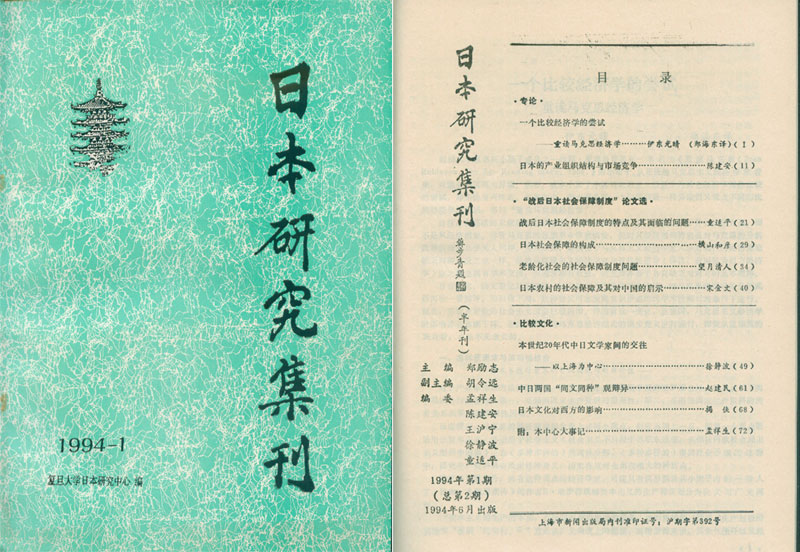 日本研究集刊
1994-1
复旦大学日本研究中心 编
日本研究集刊
苏步青题
(半年刊)
主编 郑励志
副主编 胡令远
编委 孟祥生
陈建安
王沪宁
徐静波
童适平
1994年第1期
(总第2期)
1994年6月出版
目 录
·专论·
一个比较经济学的尝试
——重读马克思经济学………伊东光晴 (郑海东译)(1)
日本的产业组织结构与市场竞争………陈建安(11)
·“战后日本社会保障制度”论文选·
战后日本社会保障制度的特点及其面临的问题……童适平(21)
日本社会保障的构成………横山和彦(29)
老龄化社会的社会保障制度问题………望月清人(34)
日本农村的社会保障及其对中国的启示………宋金文(40)
·比较文化·
本世纪20年代中日文学家间的交往
——以上海为中心………徐静波(49)
中日两国“同文同种”观辩异………赵建民(61)
日本文化对西方的影响………(68)
附:本中心大事记………孟祥生(72)
上海市新闻出版局内刊准印证号:沪期字第392号